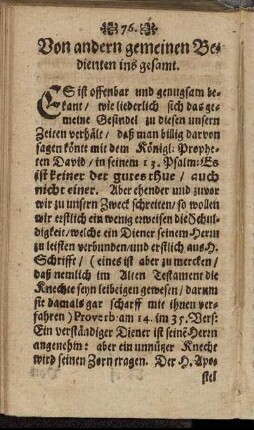 76.
Von andern gemeinen Be-
dienten ins gesamt.
ES ist offenbar und genugsam be-
kant / wie liederlich sich das ge-
meine Gesündel zu diesen unsern
Zeiten verhält / daß man billig darvon
sagen könte mit dem Königl: Prophe-
ten David / in seinem 13. Psalm: Es
ist keiner der gutes thue / auch
nicht einer. Aber ehender und zuvor
wir zu unsern Zweck schreiten / so wollen
wir erstlich ein wenig erweisen die Schul-
digkeit / welche ein Diener seinem Herrn
zu leisten verbunden / und erstlich aus H.
Schrifft / (eines ist aber zu mercken /
daß nemlich im Alten Testament die
Knechte seyn leibeigen gewesen / darum
sie damals gar scharff mit ihnen ver-
fahren) Proverb: am 14. im 35. Vers:
Ein verständiger Diener ist seinē Herrn
angenehm: aber ein unnützer Knecht
wird seinen Zorn tragen. Der H. Apo-
stel